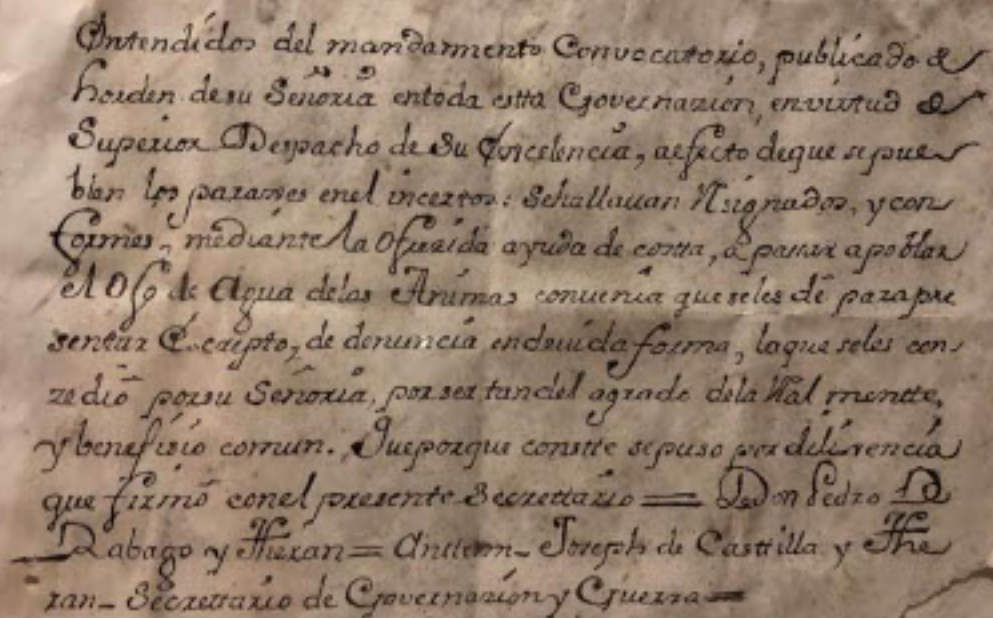 Entendidos del mandammento Convocatorio, publicado de
horden de su Señoria entoda estta Governazion, envirtud de
Superior Despacho de Su Excelencia, aefecto deque sepue
blen los paraxes enel incertos: Sehallauan Resignados, y con
formes, mediante la Ofrezida ayuda de costa, â pasar apoblar
el Ojo de Agua delas Animas convenia queseles dê parapre
sentar Escripto, de denuncia endeuida forma, laque seles con
zediô porsu Señoria, porser tandel agrado dela Real mentte,
y benefisio comun. Queporque constte sepuso por dilixencia
que firmô conel presente Secrettario = Don Pedro D
Rabago y Theran = Anttem_ Joseph de Casttilla y The
ran_ Secrettario de Governazion y Guerra =